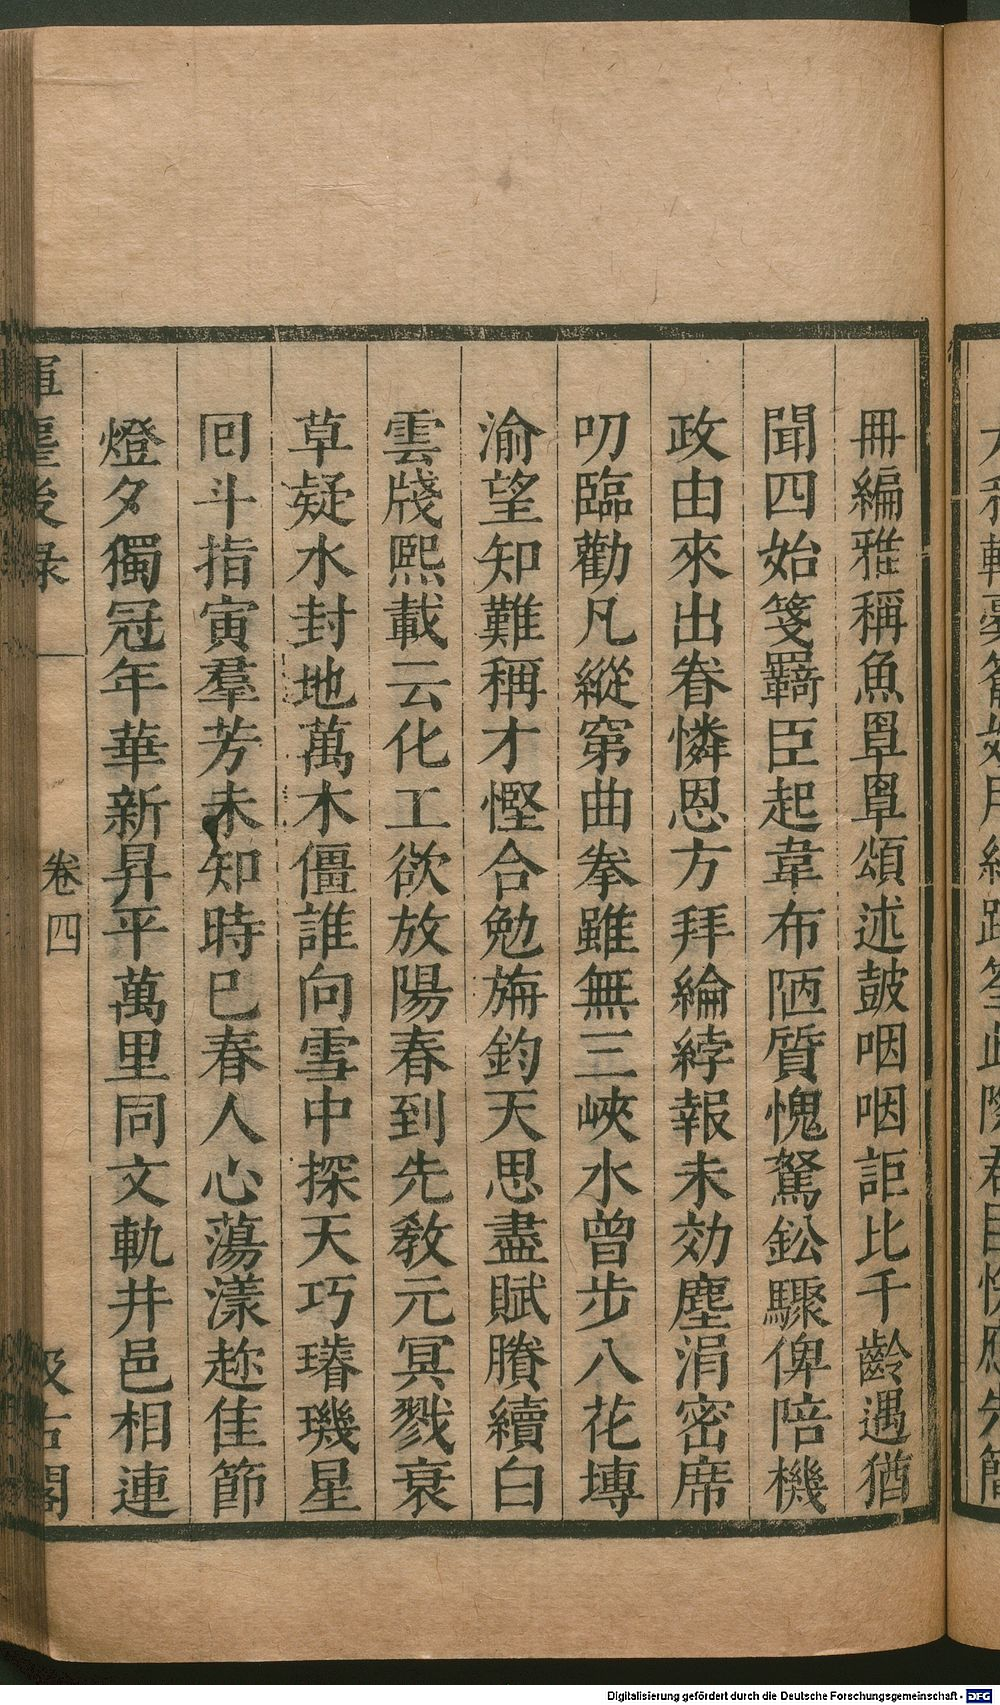 冊編雅稱魚罩罩頌述鼓咽咽詎比千齡遇猶
聞四始箋羇臣起韋布陋質愧駑鈆驟俾陪機
政由來出眷憐恩方拜綸綍報未効塵涓密席
叨臨勸凡縱窮曲拳雖無三峽水曾步八花塼
渝望知難稱才慳合勉旃鈞天思盡賦賸續白
雲牋熙載云化工欲放陽春到先敎元冥戮衰
草疑水封地萬木僵誰向雪中探天巧璿璣星
囘斗指寅羣芳未知時已春人心蕩漾趂佳節
燈夕獨冠年華新昇平萬里同文軌井邑相連
後录
卷四
汲古閣
Digitalisierung gefördert durch die Deutsche Forschungsgemeinschaft - DFG